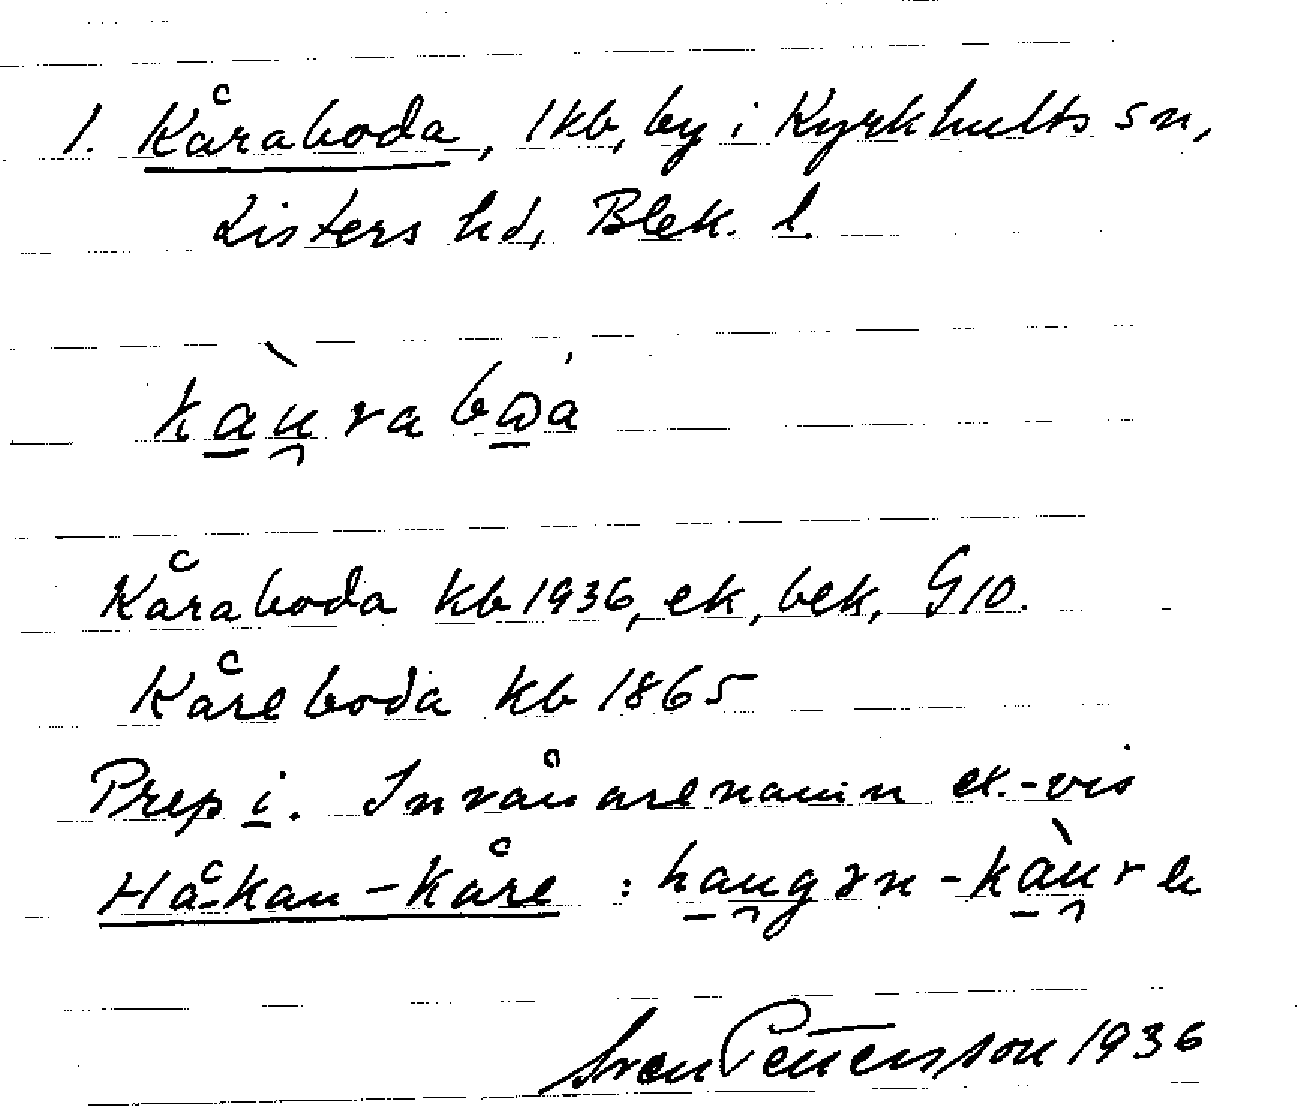 1. Kåraboda, 1 kb, by i Kyrkhults sn,
Listers hd, Blek. l.
kàu̯rabωa
Kåraboda kb 1936, ek, bek, G10.
Kåreboda kb 1865
Prep i. Invånarenamn ex.-vis
Håkan-Kåre : hau̯gən-kàu̯rə
Sven Pettersson 1936